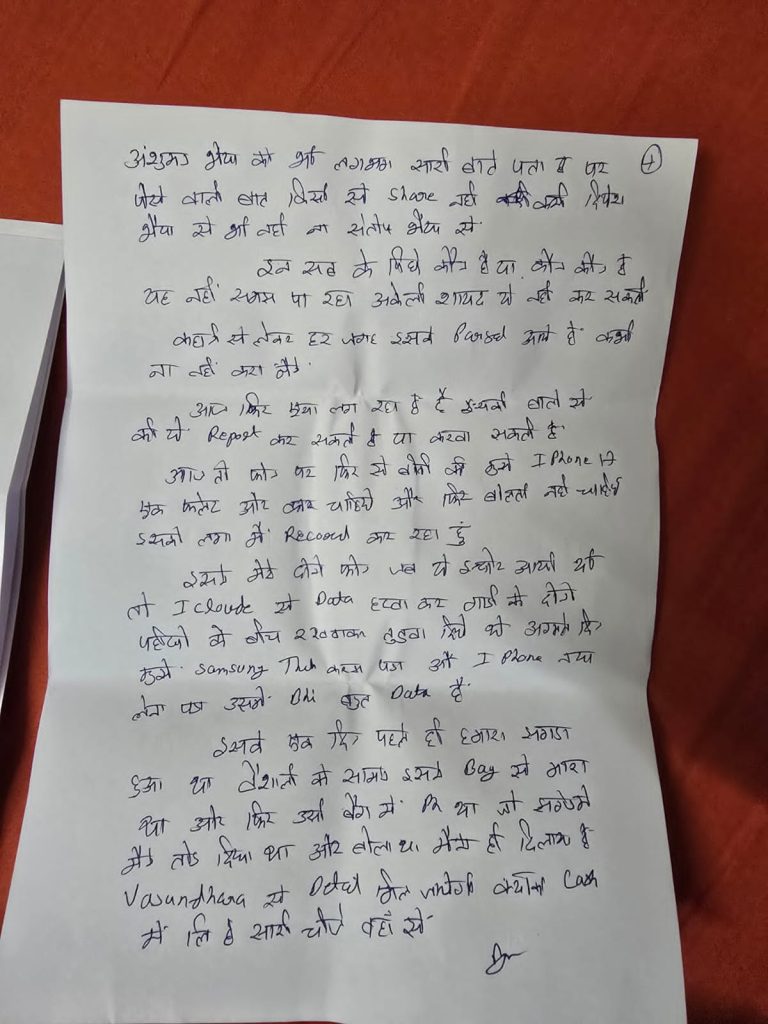 अंशुमन भैया को भी लगभग सारी बाते पता है पर
पैसे वाली बात किसी से Share नहीं करी
भैया से भी नहीं ना संतोष भैया से
इन सब के पिछे कौन है या कौन कौन है
यह नहीं समझ पा रहा अकेली शायद ये नहीं कर सकती
से लेकर हर जगह इसके आते है कभी
ना नहीं करा मैने
आज फिर लग रहा है है इसकी बातो से
की ये Report कर सकती है या करवा सकती है
आज तो फोन पर फिर से बोली की मुझे I Phone 17
एक फ्लेट और कार चाहिये और फिर बोलती नहीं चाहिये
इसको लगा मैं Record कर रहा हुं
इसने मेरे दोनो फोन जब ये इन्दोर आयी थी
तो I Cloude से Data हटवा कर गाडी के दोनो
पहीयो के बीच रखवाकर तुडवा दिये थे अगले दिन
मुझे Samsung करना पडा और I Phone नया
लेना पडा उसमे Bhi बहुत Data है
इसके एक दिन पहले ही हमारा झगडा
हुआ था वैशाली के सामने इसने Bag से मारा
था और फिर उसी बैग में था जो
मैने तोड दिया था और बोला था मैने ही दिलाया है
Vasundhara से Detail मिल जायेगी क्योंकि Cash
में लि है सारी चीजे वहाँ से